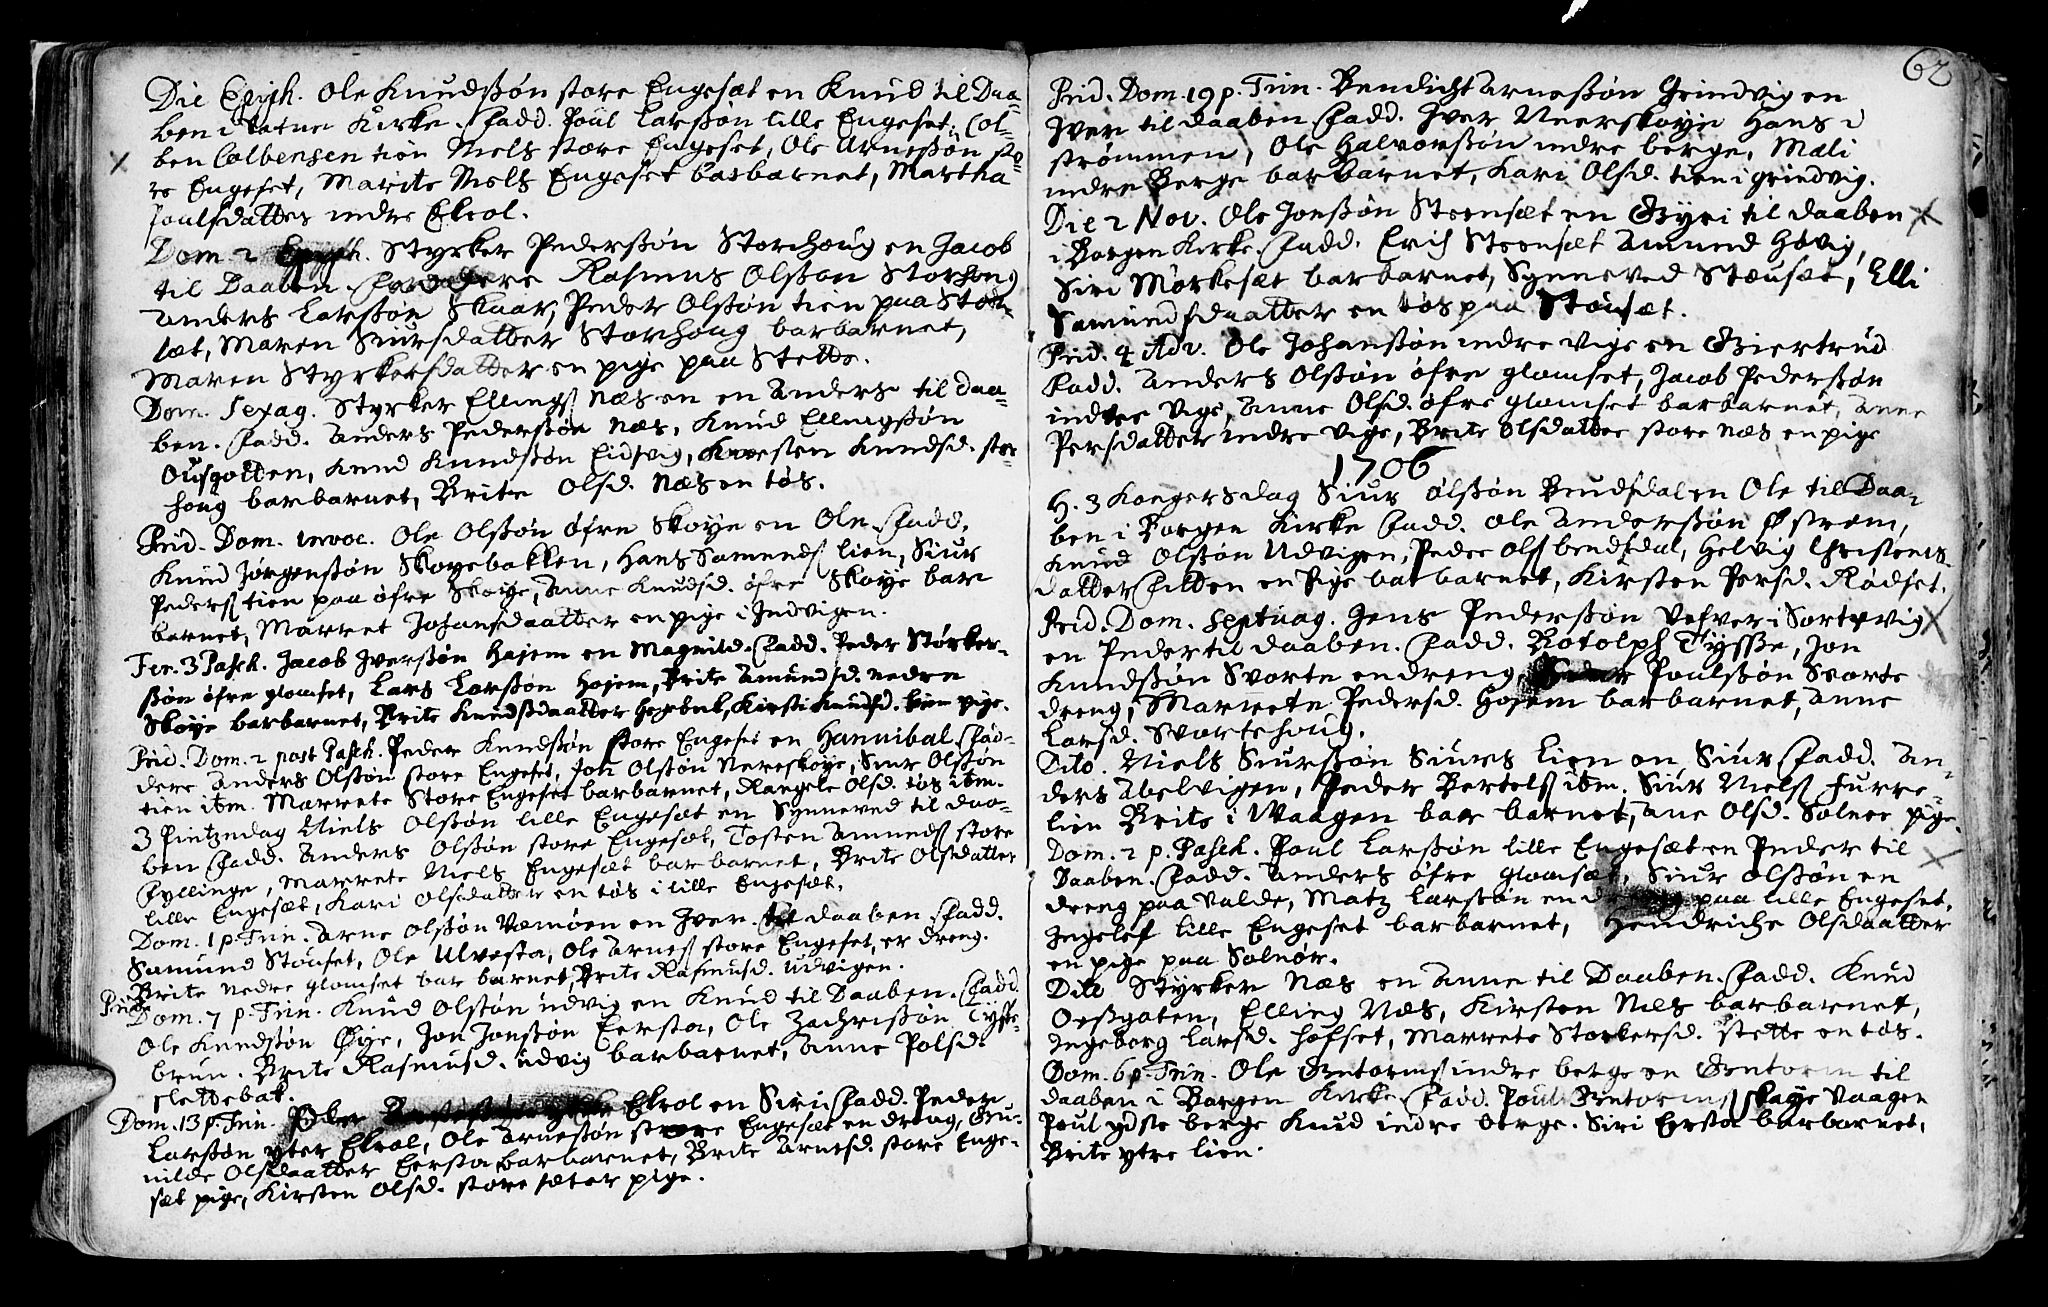 Die Epiph. Ole Knudssøn store Engesæt en Knud til Daa-
ben i Vatne Kirke. Fadd. Poul Larssøn lille Engeset, Col-
ben Colbensen tien Niels store Engeset, Ole Arnessøn sto-
re Engeset, Marite Niels Engeset barbarnet, Martha
Poulsdatter indre Ekrol.
Dom 2 Epiph. Styrker Pederssøn Storhoug en Jacob
til Daaben. Faddere Rasmus Olssøn Storhoug
Anders Larssøn Skaar, Peder Olssøn tien paa Stou-
sæt, Maren Siursdatter Storhoug barbarnet,
Maren Styrkersdatter en pige paa Stette.
Dom. Sexag. Styrker Ellings Næs en Anders til Daa-
ben. Fadd. Anders Pederssøn Næs, Knud Ellingssøn
Ousgotten, Knud Knudssøn Eidsvig, Kirsten Knudsd. stor-
houg barbarnet, Brite Olsd. Næs en tøs.
Prid. Dom. invoc. Ole Olssøn øfre Skoye en Ole. Fadd.
Knud Jørgenssøn Skoyebakken, Hans Samunds lien, Siur
Peders tien paa øfre Skoye, Anne Knudsd. øfre Skoye bar
barnet, Marret Johansdaatter en pige i Indvigen.
Fer. 3 Pasch. Jacob Iverssøn Hajem en Magnild. Fadd. Peder Størker-
ssøn øfre glomset, Lars Larssøn Hojem, Brite Amundsd. nedre
Skoye barbarnet, Brite Knudsdaatter , Kirsti Knudsd. tien pige.
Prid. Dom. 2 post Pasch. Peder Knudssøn store Engeset en Hannibal. Fad-
dere Anders Olssøn store Engeset, Jon Olssøn Nereskoye, Siur Olssøn
tien itm. Marrete Store Engeset barbarnet, Rangele Olsd. tøs itm.
3 Pintzedag Niels Olssøn lille Engesæt en Synneved til daa-
ben Fadd. Anders Olssøn store Engesæt, Tosten Amunds store
Fyllinge, Marrete Niels Engesæt barbarnet, Brite Olsdatter
lille Engesæt, Kari Olsdatter en tøs i lille Engesæt.
Dom. 1 p. Trin. Arne Olssøn Vemøen en Iver til daaben Fadd.
Samund Stouset, Ole Ulvesta, Ole Arness store Engeset, er dreng.
Brite Nedre glomset bar barnet, Brite Rasmusd. Udvigen.
Prid.
Dom. 7 p. Trin. Knud Olssøn udvig en Knud til Daaben. Fadd
Ole Knudssøn Øye, Jon Jonssøn Eersta, Ole Zachrissøn Tysse-
brun. Brite Rasmusd. udvig barbarnet, Anne Polsd.
slettebak.
Dom. 13 p. Trin. Peder Ekrol en Siri Fadd. Peder
Larssøn yter Ekrol, Ole Arnessøn store Engesæt en dreng, Gu-
nilde Olsdaatter Eersta barbarnet, Brite Arnesd. store Enge-
sæt pige, Kirsten Olsd. store sæter pige.
62
Prid. Dom. 19 p. Trin. Bendicht Arnessøn Grindvig en
Iver til daaben Fadd. Iver Neerskoye Hans i
strømmen, Ole Halvorssøn indre berge, Mæli
indre Berge barbarnet, Kari Olsd. tien i grindvig.
Die 2 Nov. Ole Jonssøn Steensæt en Gyri til daaben
i Borgen Kirke. Fadd. Erich Steensæt Amund Høvig,
Siri Mørkesæt barbarnet, Synneved Stousæt, Elli
Samundsdaatter en tøs paa Stousæt.
Prid. 4 Adv. Ole Johanssøn indre vige en Giertrud
Fadd. Anders Olssøn øfre glomset, Jacob Pederssøn
indre vige, Anne Olsd. øfre glomset barbarnet, Anne
Persdatter indre vige, Brite Olsdatter store næs en pige
1706
H. 3 Kongersdag Siur Olssøn Bendsdal en Ole til Daa-
ben i Borgen Kirke Fadd. Ole Anderssøn Østrem,
Knud Olssøn Udvigen, Peder Ols bendsdal, Helvig Christens-
datter en Pige barbarnet, Kirsten Persd. Rødset.
Prid. Dom. Septuag. Jens Pederssøn Vefver i Sortevig
en Peder til daaben. Fadd. Rotolph Tyssse, Jon
Knudssøn Svorte en dreng, Poulssøn Svorte
dreng, Marrete Pedersd. Hojem barbarnet, Anne
Larsd. Svortehoug.
Dito. Niels Siurssøn Siurs Lien en Siur Fadd. An-
ders Abelvigen, Peder Bertels itm. Siur Niels Furre-
lien Brite i Waagen bar barnet, Ane Olsd. Solnør pige.
Dom. 2 p. Pasch. Poul Larssøn lille Engesæt en Peder til
Daaben. Fadd. Anders øfre glomsæt, Siur Olssøn en
dreng paa Valde, Matz Larssøn en dreng paa lille Engeset,
Ingelef lille Engeset barbarnet, Hendriche Olsdaatter
en pige paa Solnør.
Dito Styrker Næs en Anne til Daaben. Fadd. Knud
Orssgaten, Elling Næs, Kirsten Næs barbarnet,
Ingeborg Larsd. hofset, Marrete Storkersd. stette en tøs.
Dom. 6 p. Trin. Ole Gutorms indre berge en Gutorm til
daaben i Borgen Kirke Fadd. Poul Gutorms Skaye Vaagen
Poul ydste berge Knud indre berge. Siri Eersta barbarnet,
Brite ytre lien.